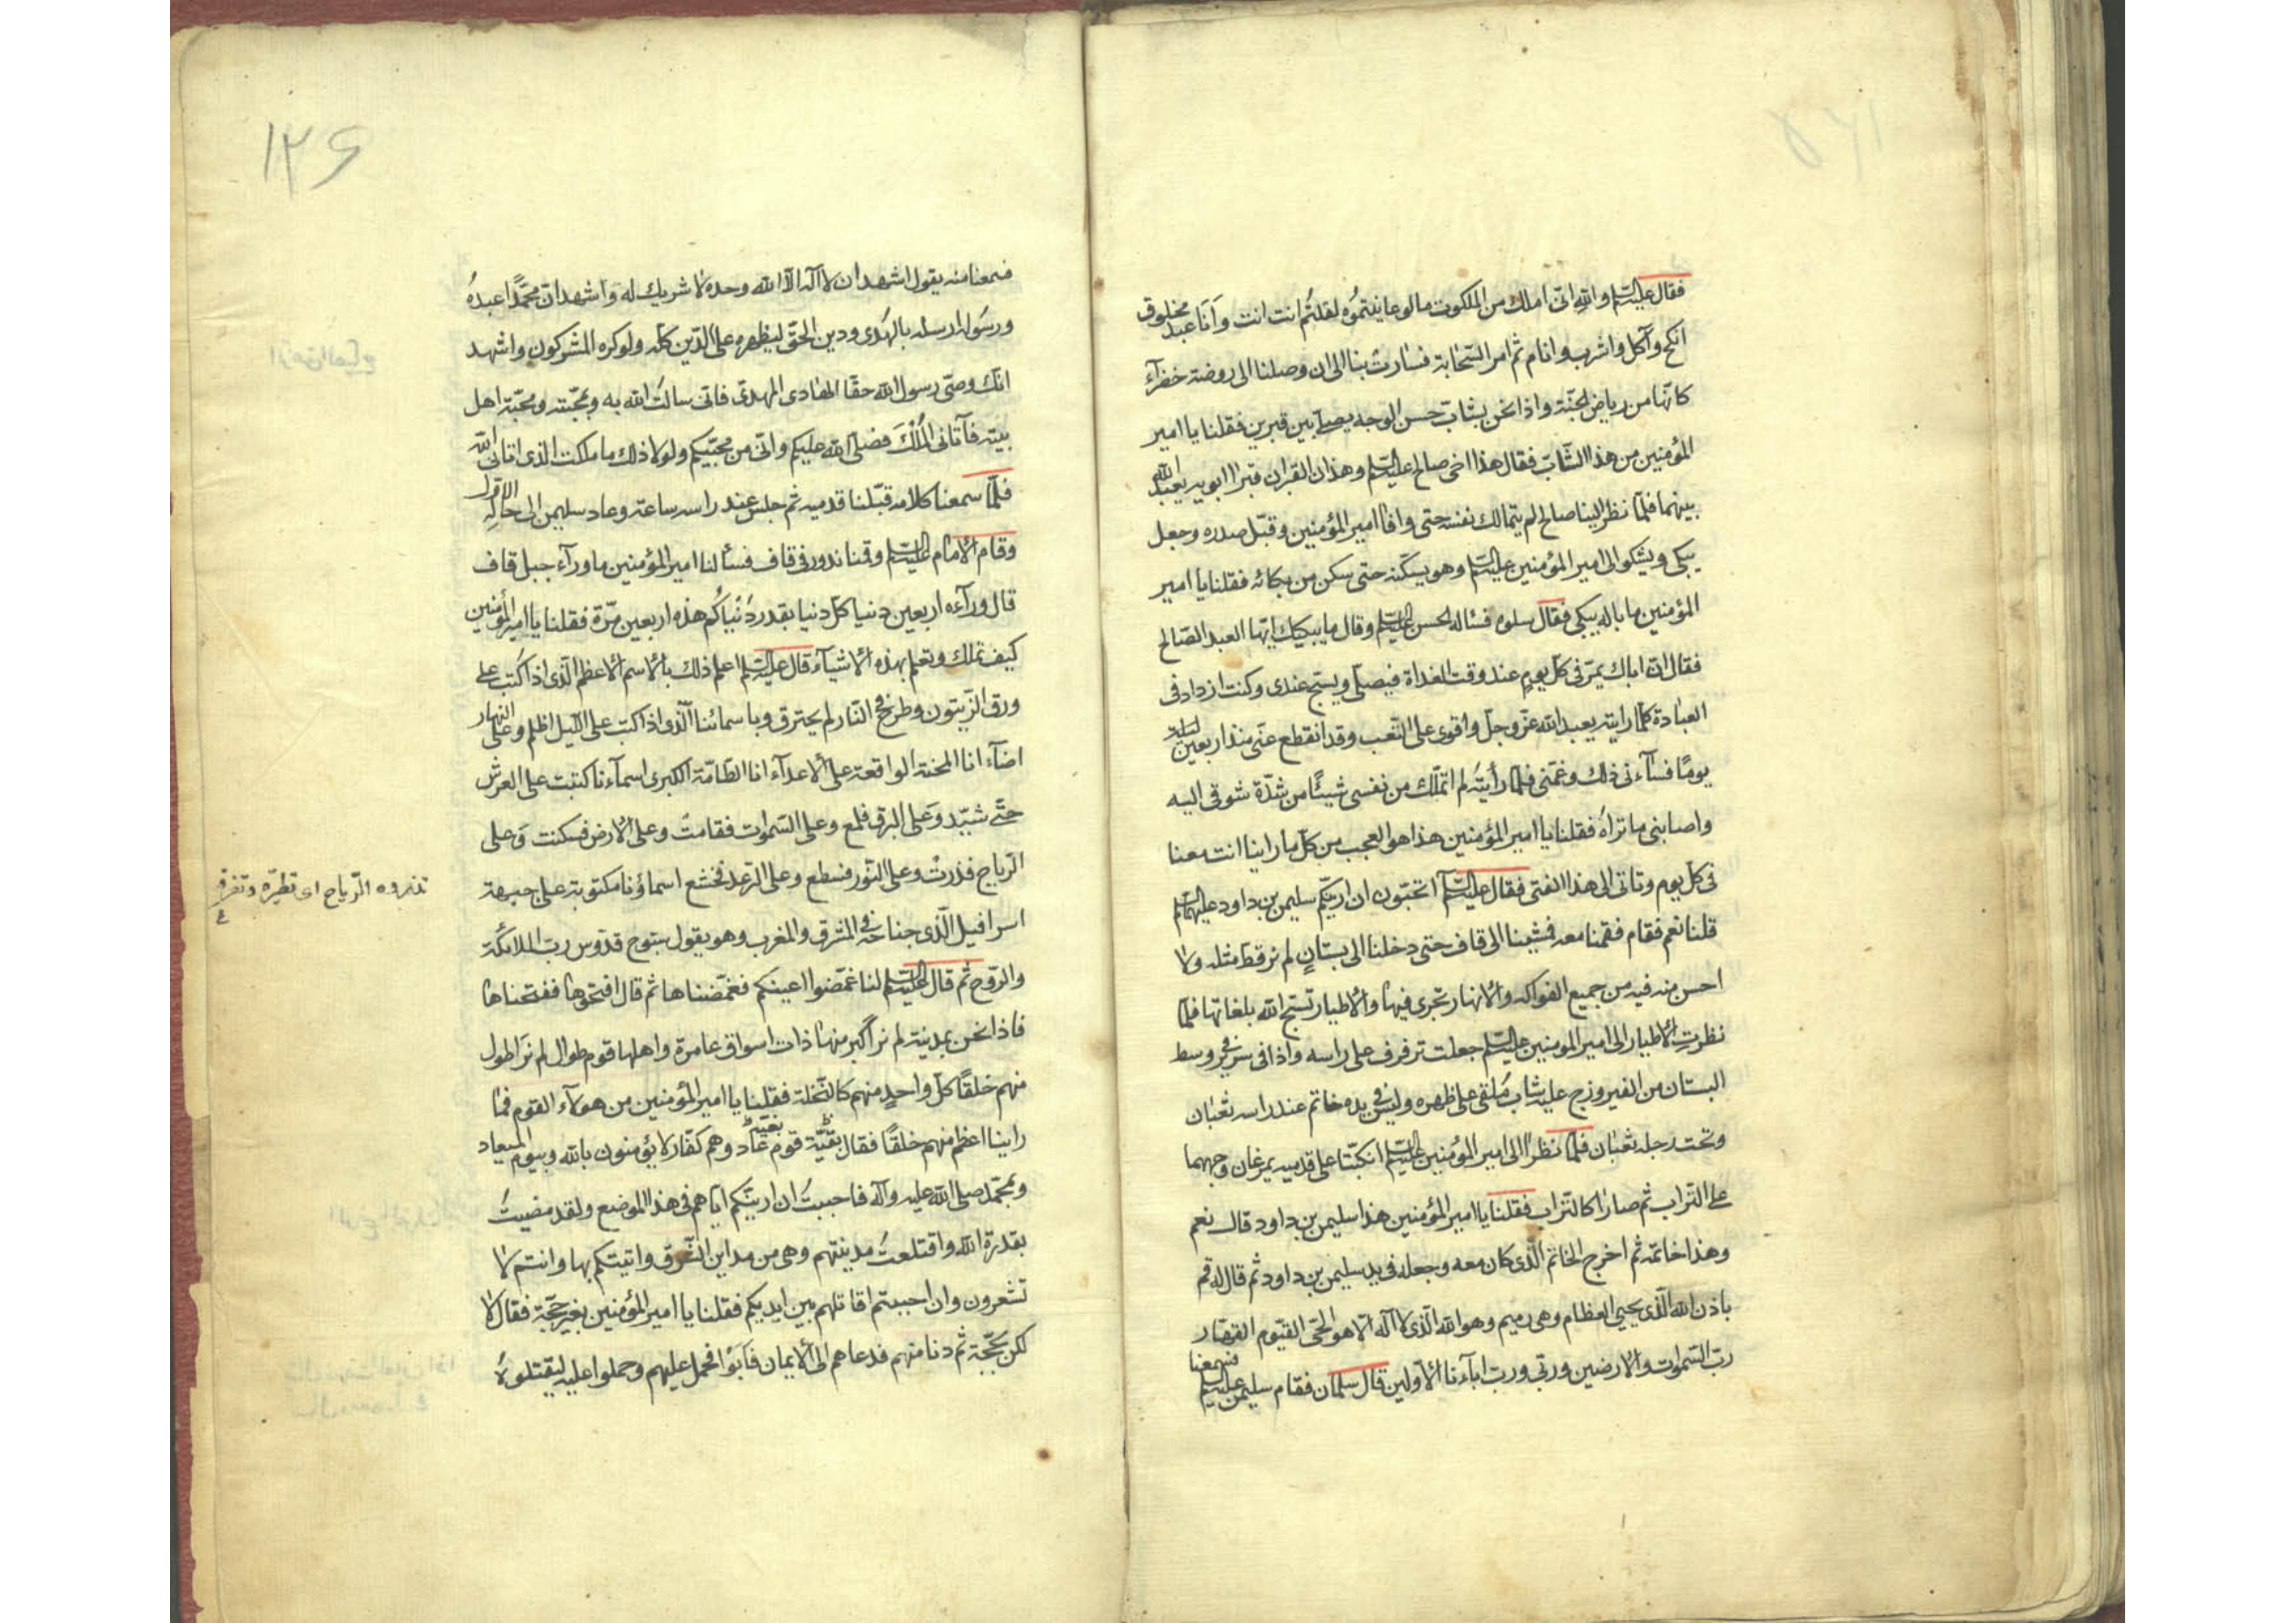 فقال عليه السلم والله انى املك من الملكوت ما لو عاينتموُه لقلتُم انت انت وَانَا عبد مخلوق
انكح وآكل واشرب وانام ثم امر السّحٰابة فسٰارت بنا الى ان وصلنا الى روضة خضرآء
كانّها من رياض الجنّة واذا نحن بشابّ حسن الوجه يصلّى بين قبرين فقلنا يا امير
المؤمنين من هذا الشّابّ فقال هذا اخى صالح عليه السلم وهذان القبران قبرا ابويه يعبد الله
بينهما فلمّا نظر الينا صالح لم يتمالك نفسه حتى وافا امير المؤمنين وقبّل صدره وجعل
يبكى ويشكو الى امير المؤمنين عليه السلم وهو يسكّنه حتى سكن من بكائه فقلنا يا امير
المؤمنين ما باله يبكى فقال سلوه فسئاله الحسن عليه السلم وقال ما يبكيك ايّها العبد الصّالح
فقال انّ اباك يمرّ فى كلّ يوم عند وقت الغداة فيصلّى ويسبّح عندى وكنت ازداد فى
العبٰادة كلّما رايته يعبد الله عزّ وجلّ واقوى على التّعب وقد انقطع عنّى منذ اربعين ليلة
يومًا فسآءنى ذلك وغمّنى فلمّا رأيتهُ لم اتملّك من نفسى شيئًا من شدّة شوقى اليه
واصابنى ما تراهُ فقلنا يا امير المؤمنين هذا هو العجب من كلّ ما راينا انت معنا
فى كل يوم وتاتى الى هذا الفتى فقال عليه السلم اتحبّون ان اريكم سليمن بن داود عليهما السلم
قلنا نعم فقام فقمنا معه فمشينا الى قاف حتى دخلنا الى بستانٍ لم نر قطّ مثله ولا
احسن منه فيه من جميع الفواكه والانهار تجرى فيها والاطيار تسبّح الله بلغاتها فلمّا
نظرت الاطيار الى امير المومنين عليه السلم جعلت ترفرف على راسه واذا فى سرير فى وسط
البستان من الفيروزج عليه شابّ مُلقى على ظهره وليس فى يده خاتم عند راسه ثعبٰان
وتحت رجله ثعبٰان فلمّا نظرا الى امير المؤمنين عليه السلم انكبّا على قدميه يمرغان وجههما
على التّراب ثم صارٰا كالتّراب فقلنا يا امير المؤمنين هذا سليمن بن داود قال نعم
وهذا خاتمه ثم اخرج الخاتم الّذى كان معه وجعله فى يد سليمن بن داود ثم قال له قم
باذن الله الّذى يحيى العظام وهى رميم وهو الله الّذى لا اله الّا هو الحىّ القيّوم القهّار
ربّ السّموات والارضين وربّى وربّ ابآءنا الاوّلين قال سلمان فقام سليمن عليه السلم فسمعنا
۱۲۶
فسمعنا منه يقول اشهد ان لا اله الّا الله وحده لا شريك له واشهد انّ محمّدًا عبدهُ
ورسَوله ارسله بالهُدى ودين الحقّ ليظهره على الدّين كلّه ولو كره المشركون واشهد
انّك وصىّ رسول الله حقّا الهٰادى المهدىّ فانى سالتُ الله به وبمحّبته ومحبّة اهل
بيته فآتانى المُلْكَ فضلّى الله عليكم وانّى من محبّيكم ولولا ذلك ما ملكت الذى اتانى الله
فلمّا سمعنا كلامه قبّلنا قدميه ثم جلس عند راسه ساعة وعاد سليمن الى حالِه الاوّل
وقام الامٰام عليه السلم وقمنا ندور فى قاف فسألنا امير المؤمنين ما ورآء جبل قاف
قال ورآءه اربعين دنيا كلّ دنيا بقدر دُنْياكُم هذه اربعين مرّة فقلنا يا امير المؤمنين
كيف تملك وتعلم بهذه الاشيآء قال عليه السلم اعلم ذلك بالاسم الاعظم الّذى اذا كُتب على
ورق الزّيتون وطرح فى النّار لم يحترق وباسمائنا الّذى اذا كتب على اللّيل اظلم وعلى النهار
اضآء انا المحنة الواقعة على الاعدآء انا الطّامّة الكبرى اسمآءنا كتبت على العرش
حتّى شيّد وَعلى البرق فلمع وعلى السّموات فقامتْ وعلى الارض فسكنت وَعلى
الرّياح فذرتْ وعلى النّور فسطع وعلى الرّعد فخشع اسماؤنا مكتوبة على جبهة
تذروه الرّياح اى تطيّره وتفرقه
ع
اسرافيل الّذى جناحه فى المشرق والمغرب وهو يقول سبّوح قدّوس ربّ الملائكة
والرّوح ثم قال عليه السلم لنا غمّضوا اعينكم فغمّضناها ثم قال افتحوها ففتحناها
فاذا نحن بمدينة لم نر اكبر منهٰا ذات اسواق عامرة واهلها قوم طوال لم نرَ اطول
منهم خلقًا كلّ واحدٍ منهم كالنّخلة فقلنا يا امير المؤمنين من هولآء القوم فمٰا
راينا اعظم منهم خلقًا فقال بقيّة قوم عٰاد وهم كفّار لا يؤمنون بالله وبيوم الميعاد
بقيّة
وبمحمّد صلّى الله عليه وآله فاحببتُ ان اريكم ايّاهم فى هذا الموضع ولقد مضيتُ
بقدرة الله واقتلعتُ مدينتهم وهى من مداين الشّرق واتيتكم بها وانتم لا
تشعرون وان احببتم اقاتلهم بين ايديكم فقلنا يا امير المؤمنين بغير حجّة فقال لا
لكن بحجّة ثم دنا منهم فدعاهم الى الايمان فآبَوْا فحمل عليهم وحملوا عليه ليقتلوهُ